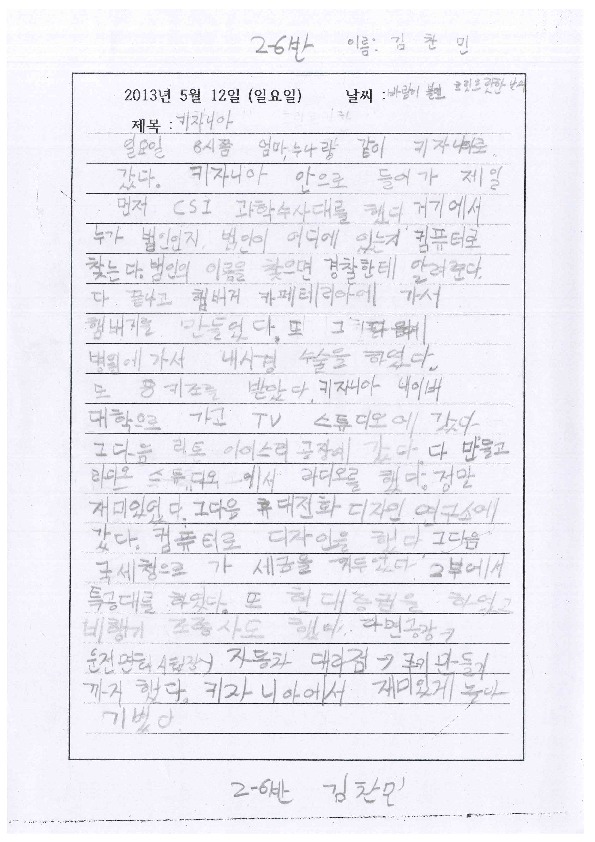 2-6반 이름: 김찬민
2013년 5월 12일 (일요일) 날씨 : 바람이 불면
제목 : 키자니아
일요일 8시쯤 엄마,누나랑 같이 키자니아로
갔다. 키자니아 안으로 들어가 제일
먼저 CSI 과학수사대를 했다 거기에서
누가 범인인지, 범인이 어디에 있는지 컴퓨터로
찾는다.범인의 이름을 찾으면 경찰한테 알려준다.
다 끝나고 햄버거 카페테리아에 가서
햄버거를 만들었다.또 그 다음에
병원에가서 내시경 수술을 하였다.
또 8키조를 받았다.키자니아 네이버
대학으로 가고 TV 스튜디오에 갔다
그다음 아이스티 공장에 갔다.다 만들고
라디오 스튜디오 에서 라디오를 했다.정말
재미있었다.그다음 휴대전화 디자인 연구소에
갔다.컴퓨터로 디자인을 했다 그다음
국세청으로 가 세금을 2부에서
특공대를 하였다.또 현대 을 하였고
비행기 조종사도 했어. 라면공장→
운전면허시험장→ 자동차 대리점→ 쿠키 만들기
까지 했다.키자니아에서 재미있게 누나
기뻤다
2-6반 김찬민